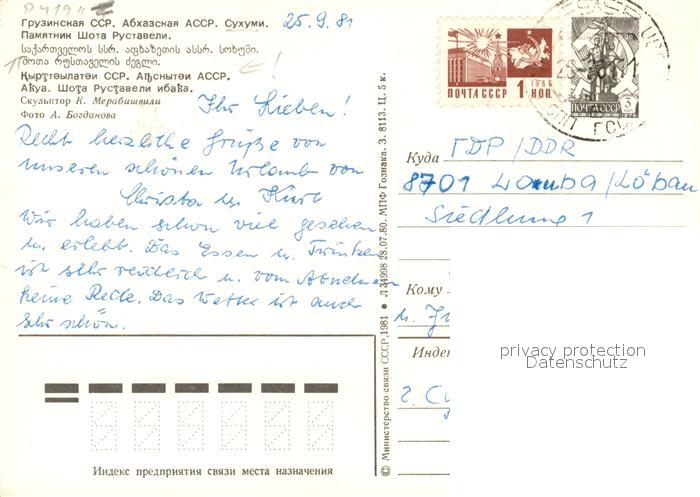 25.9.81
Грузинская ССР. Абхазская АССР. Сухуми.
Памятник Шота Руставели.
საქართველოს სსრ. აფხაზეთის ასსრ. სოხუმი.
შოთა რუსთაველის ძეგლი.
Қырҭтәылатәи ССР. Аҧснытәи АССР.
Аҟуа. Шоҭа Русҭавели ибаҟа.
Скульптор К. Мерабишвили
Фото А. Богданова
Ihr Lieben!
Recht herzliche Grüße von
unseren schönen Urlaub von
Christa u. Kurt
Wir haben schon viel gesehen
u. erlebt. Das Essen u. Trinken
ist sehr reichlich u. vom Abnehmen
keine Rede. Das Wetter ist auch
sehr schön.
Индекс предприятия связи места назначения
© Министерство связи СССР, 1981 ● Л 34998 28.07.80. МПФ Гознака. З. 8113. Ц. 5 к.
1966
ПОЧТА СССР 1 КОП.
ПОЧТА СССР 3
Куда ГДР/DDR
8701 /Löbau
Siedlung 1
Кому
u.
Индекс
г. Су
privacy protection
DatenSchutz